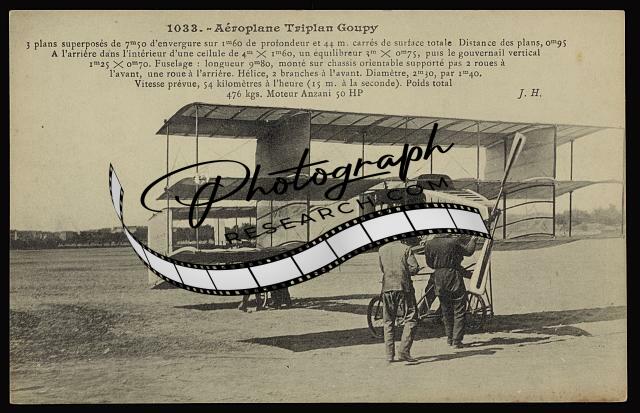 1033. - Aéroplane Triplan Goupy
3 plans superposés de 7m50 d'envergure sur 1m60 de profondeur et 44 m. carrés de surface totale Distance des plans, 0m95
A l'arrière dans l'intérieur d'une cellule de 4m × 1m60, un équilibreur 3m × 0m75, puis le gouvernail vertical
1m25 × 0m70. Fuselage : longueur 9m80, monté sur chassis orientable supporté pas 2 roues à
l'avant, une roue à l'arrière. Hélice, 2 branches à l'avant. Diamètre, 2m30, par 1m40.
Vitesse prévue, 54 kilomètres à l'heure (15 m. à la seconde). Poids total
476 kgs. Moteur Anzani 50 HP
J. H.
Photograph
RESEARCH.COM